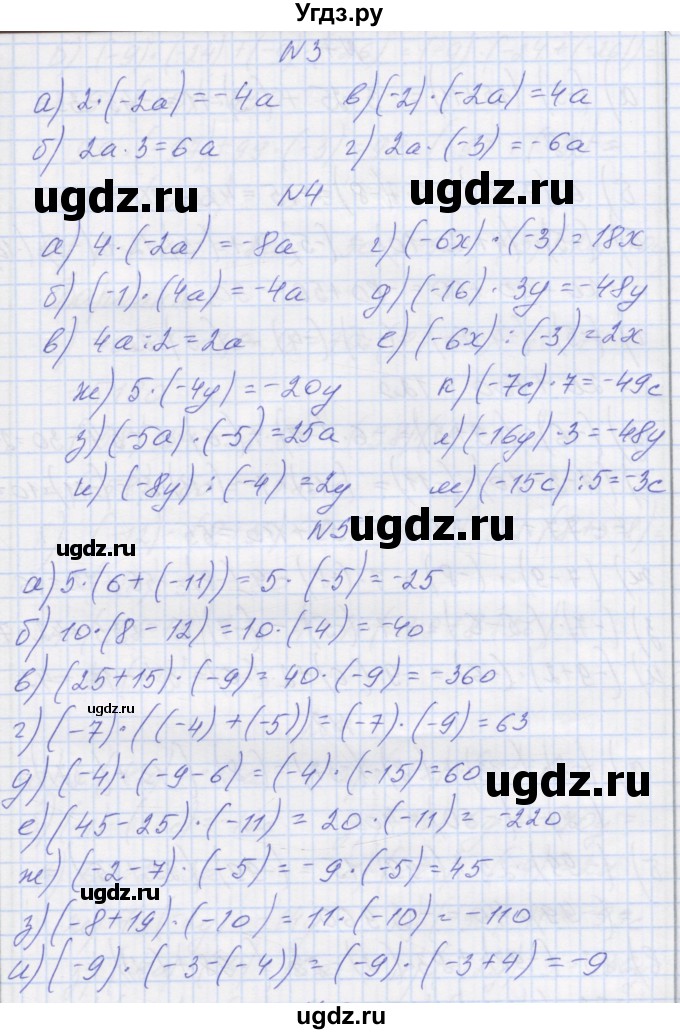 Угдз.ру
N3
а) 2·(-2a) = -4a в) (-2)·(-2a) = 4a
б) 2a·3=6a г) 2a·(-3) = -6a
ugdz.ru ugdz.ru
N4
а) 4·(-2a) = -8a г) (-6x)·(-3) = 18x
б) (-1)·(4a) = -4a д) (-16)·3y = -48y
в) 4a:2=2a е) (-6x):(-3) = 2x
ж) 5·(-4y) = -20y к) (-7c)·7 = -49c
з) (-5a)·(-5) = 25a л) (-16y)·3 = -48y
и) (-8y):(-4) = 2y м) (-15c):5 = -3c
N5 ugdz.ru
ugdz.ru
а) 5·(6+(-11)) = 5·(-5) = -25
б) 10·(8-12) = 10·(-4) = -40
в) (25+15)·(-9) = 40·(-9) = -360
ugdz.ru
г) (-7)·((-4)+(-5)) = (-7)·(-9) = 63
д) (-4)·(-9-6) = (-4)·(-15) = 60
ugdz.ru
е) (45-25)·(-11) = 20·(-11) = -220
ж) (-2-7)·(-5) = -9·(-5) = 45
ugdz.ru
з) (-8+19)·(-10) = 11·(-10) = -110
и) (-9)·(-3-(-4)) = (-9)·(-3+4) = -9
ugdz.ru